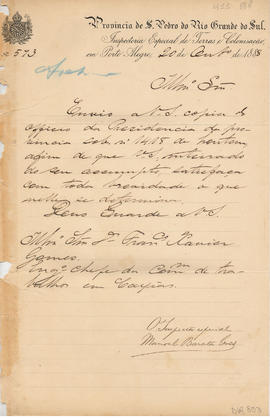 Provincia de S. Pedro do Rio Grande do Sul.
Inspectoria Especial de Terras e Colonisação,
em Porto Alegre, 20 de de 1888
Nº 573
Illmo Snr
Envio a V. S. copia do
officio da Presidencia da pro-
vincia sob nº 1418 de hontem,
afim de que V. S., inteirado
do seu assumpto, satisfaça
com toda brevidade o que
nelle se determina.
Deus Guarde a V. S.
Illmo Snr Dr Franco Xavier
Gomes.
Engo chefe da Comm de tra-
balhos em Caxias
O Inspector especial
Manoel Barata Góes